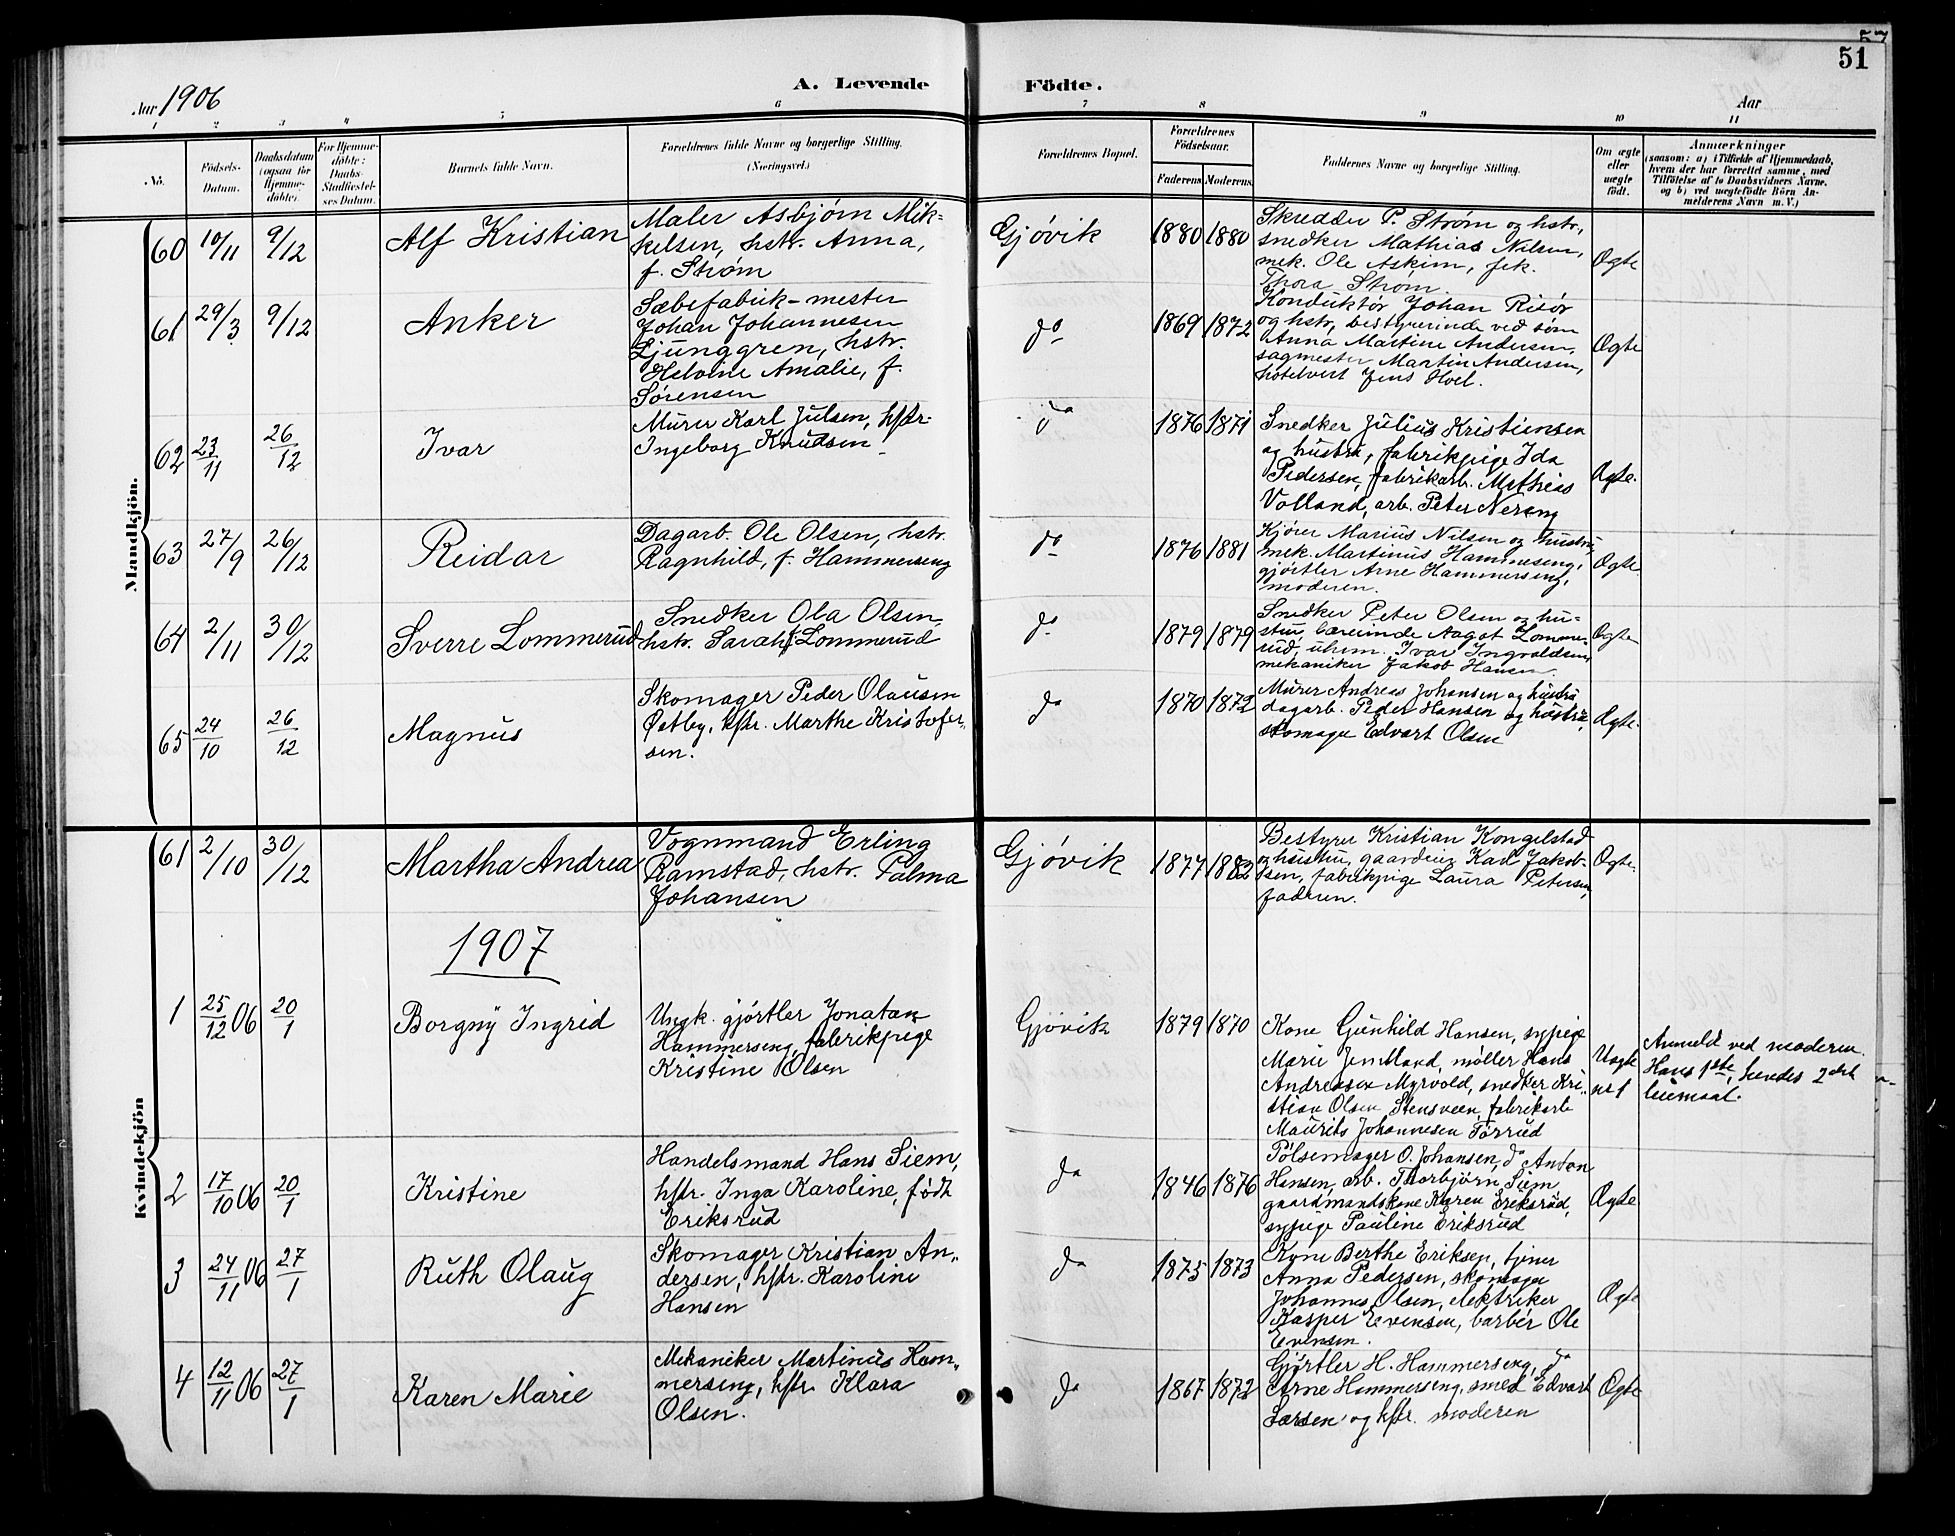 57
51
Aar 1906
A. Levende Födte.
Aar
1 2 3 4 5 6 7 8 9 10 11
No.
Födsels-
Datum.
Daabsdatum
(ogsaa for
Hjemme-
döbte).
For Hjemme-
döbte:
Daabs-
Stadfæstel-
ses Datum.
Barnets fulde Navn.
Forældrenes fulde Navne og borgerlige Stilling.
(Næringsvei.)
Forældrenes Bopæl.
Forældrenes
Födselsaar.
Faderens
Moderens
Faddernes Navne og borgerlige Stilling.
Om ægte
eller
uægte
födt.
Anmærkninger
(saasom: a) i Tilfælde af Hjemmedaab,
hvem der har forrettet samme, med
Tilföielse af to Daabsvidners Navne,
og b) ved uægtefödte Börn An-
melderens Navn m. V.)
Mandkjön.
60 10/11 9/12 Alf Kristian
Maler Asbjørn Mik-
kelsen, hstr. Anna,
f. Strøm
Gjøvik 1880 1880
Skredder P. Strøm og hstr,
snedker Mathias Nilsen,
mek. Ole Askim, frk.
Thora Strøm.
Ægte
61 29/3 9/12 Anker
Sæbefabrik-mester
Johan Johannesen
Ljunggren, hstr.
Helvine Amalie, f.
Sørensen
do 1869 1872
Konduktør Johan Risør
og hstr, bestyrerinde ved søm
Anna Martine Andersen,
sagmester Martin Andersen,
hotelvert Jens Hoel.
Ægte
62 23/11 26/12 Ivar
Murer Karl Julsen, hstr.
Ingeborg Knudsen
do 1876 1871
Snedker Julius Kristiensen
og hustru, fabrikpige Ida
Pedersen, fabrikarb. Mathias
Volland, arb. Peter Nereng
Ægte.
63 27/9 26/12 Reidar
Dagarb. Ole Olsen, hstr.
Ragnhild, f. Hammerseng
do 1876 1881
Kjører Marius Nilsen og hustru,
mek. Martinus Hammerseng,
gjørtler Arne Hammerseng,
moderen.
Ægte
64 2/11 30/12 Sverre Lommerud
Snedker Ola Olsen,
hstr. Sarah f. Lommerud
do 1879 1879
Snedker Peter Olsen og hu-
stru, lærerinde Aagot Lomme-
rud, uhrm. Ivar Ingvaldsen,
mekaniker Jakob Hansen
Ægte
65 24/10 26/12 Magnus
Skomager Peder Olausen
Østby, hstr. Marthe Kristofer-
sen.
do 1870 1872
Murer Andreas Johansen og hustru
dagarb. Peder Hansen og hustru,
skomager Edvart Olsen
Ægte.
Kvindekjön
61 2/10 30/12 Martha Andrea
Vognmand Erling
Ramstad, hstr. Palma
Johansen
Gjøvik 1877 1882
Bestyrer Kristian Kongelstad
og hustru, gaardeier Karl Jakob-
sen, fabrikpige Laura Petersen,
faderen.
Ægte.
1907
1 25/12 06 20/1 Borgny Ingrid
Ungk. gjørtler Jonatan
Hammerseng, fabrikpige
Kristine Olsen
Gjøvik 1879 1870
Kone Gunhild Hansen, sypige
Marie Jemtland, møller Hans
Andreasen Myrvold, snedker Kri-
stian Olsen Stensveen, fabrikarb
Maurits Johannesen Tørrud
Uægte
nr 1
Anmeldt ved moderen.
Hans 1ste, hendes 2det
leiermaal.
2 17/10 06 20/1 Kristine
Handelsmand Hans Siem,
hstr. Inga Karoline, født
Eriksrud
do 1846 1876
Pølsemager O. Johansen, do Anton
Hansen, arb. Thorbjørn Siem
gaardmandskone Karen Eriksrud,
sypige Pauline Eriksrud
Ægte
3 24/11 06 27/1 Ruth Olaug
Skomager Kristian An-
dersen, hstr. Karoline
Hansen
do 1875 1873
Kone Berthe Eriksen, tjener
Anna Pedersen, skomager
Johannes Olsen, elektriker
Kasper Evensen, barbér Ole
Evensen.
Ægte
4 12/11 06 27/1 Karen Marie
Mekaniker Martinus Ham-
merseng, hstr. Klara
Olsen.
do 1867 1872
Gjørtler H. Hammerseng, do
Arne Hammerseng, smed Edvart
Larsen og hstr. moderen
Ægte